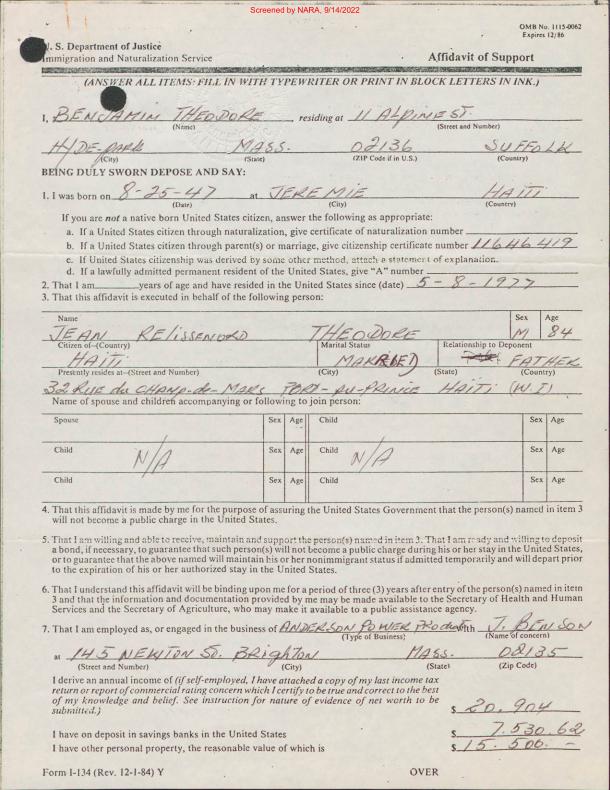 Screened by NARA, 9/14/2022
OMB No. 1115-0062
Expires 12/86
U. S. Department of Justice
Immigration and Naturalization Service
Affidavit of Support
(ANSWER ALL ITEMS: FILL IN WITH TYPEWRITER OR PRINT IN BLOCK LETTERS IN INK.)
I, BENJAMIN THEODORE, residing at 11 ALPINE ST.
(Name) (Street and Number)
HYDE-PARK MASS. 02136 SUFFOLK
(City) (State) (ZIP Code if in U.S.) (Country)
BEING DULY SWORN DEPOSE AND SAY:
1. I was born on 8-25-47 at JEREMIE HAITI
(Date) (City) (Country)
If you are not a native born United States citizen, answer the following as appropriate:
a. If a United States citizen through naturalization, give certificate of naturalization number
b. If a United States citizen through parent(s) or marriage, give citizenship certificate number 11646419
c. If United States citizenship was derived by some other method, attach a statement of explanation.
d. If a lawfully admitted permanent resident of the United States, give "A" number
2. That I am years of age and have resided in the United States since (date) 5-8-1977
3. That this affidavit is executed in behalf of the following person:
Name Sex Age
JEAN RELISSENORD THEODORE M 84
Citizen of-(Country) Marital Status Relationship to Deponent
HAITI MARRIED FATHER
Presently resides at-(Street and Number) (City) (State) (Country)
32 RUE du CHAMP-de-MARS PORT-au-PRINCE HAITI (W.I)
Name of spouse and children accompanying or following to join person:
Spouse Sex Age Child Sex Age
Child N/A Sex Age Child N/A Sex Age
Child Sex Age Child Sex Age
4. That this affidavit is made by me for the purpose of assuring the United States Government that the person(s) named in item 3
will not become a public charge in the United States.
5. That I am willing and able to receive, maintain and support the person(s) named in item 3. That I am ready and willing to deposit
a bond, if necessary, to guarantee that such person(s) will not become a public charge during his or her stay in the United States,
or to guarantee that the above named will maintain his or her nonimmigrant status if admitted temporarily and will depart prior
to the expiration of his or her authorized stay in the United States.
6. That I understand this affidavit will be binding upon me for a period of three (3) years after entry of the person(s) named in item
3 and that the information and documentation provided by me may be made available to the Secretary of Health and Human
Services and the Secretary of Agriculture, who may make it available to a public assistance agency.
7. That I am employed as, or engaged in the business of ANDERSON POWER Product with J. BENSON
(Type of Business) (Name of concern)
at 145 NEWTON St. Brighton MASS. 02135
(Street and Number) (City) (State) (Zip Code)
I derive an annual income of (if self-employed, I have attached a copy of my last income tax
return or report of commercial rating concern which I certify to be true and correct to the best
of my knowledge and belief. See instruction for nature of evidence of net worth to be
submitted.) $ 20.904
I have on deposit in savings banks in the United States $ 7.530.62
I have other personal property, the reasonable value of which is $ 15.500.-
Form I-134 (Rev. 12-1-84) Y OVER